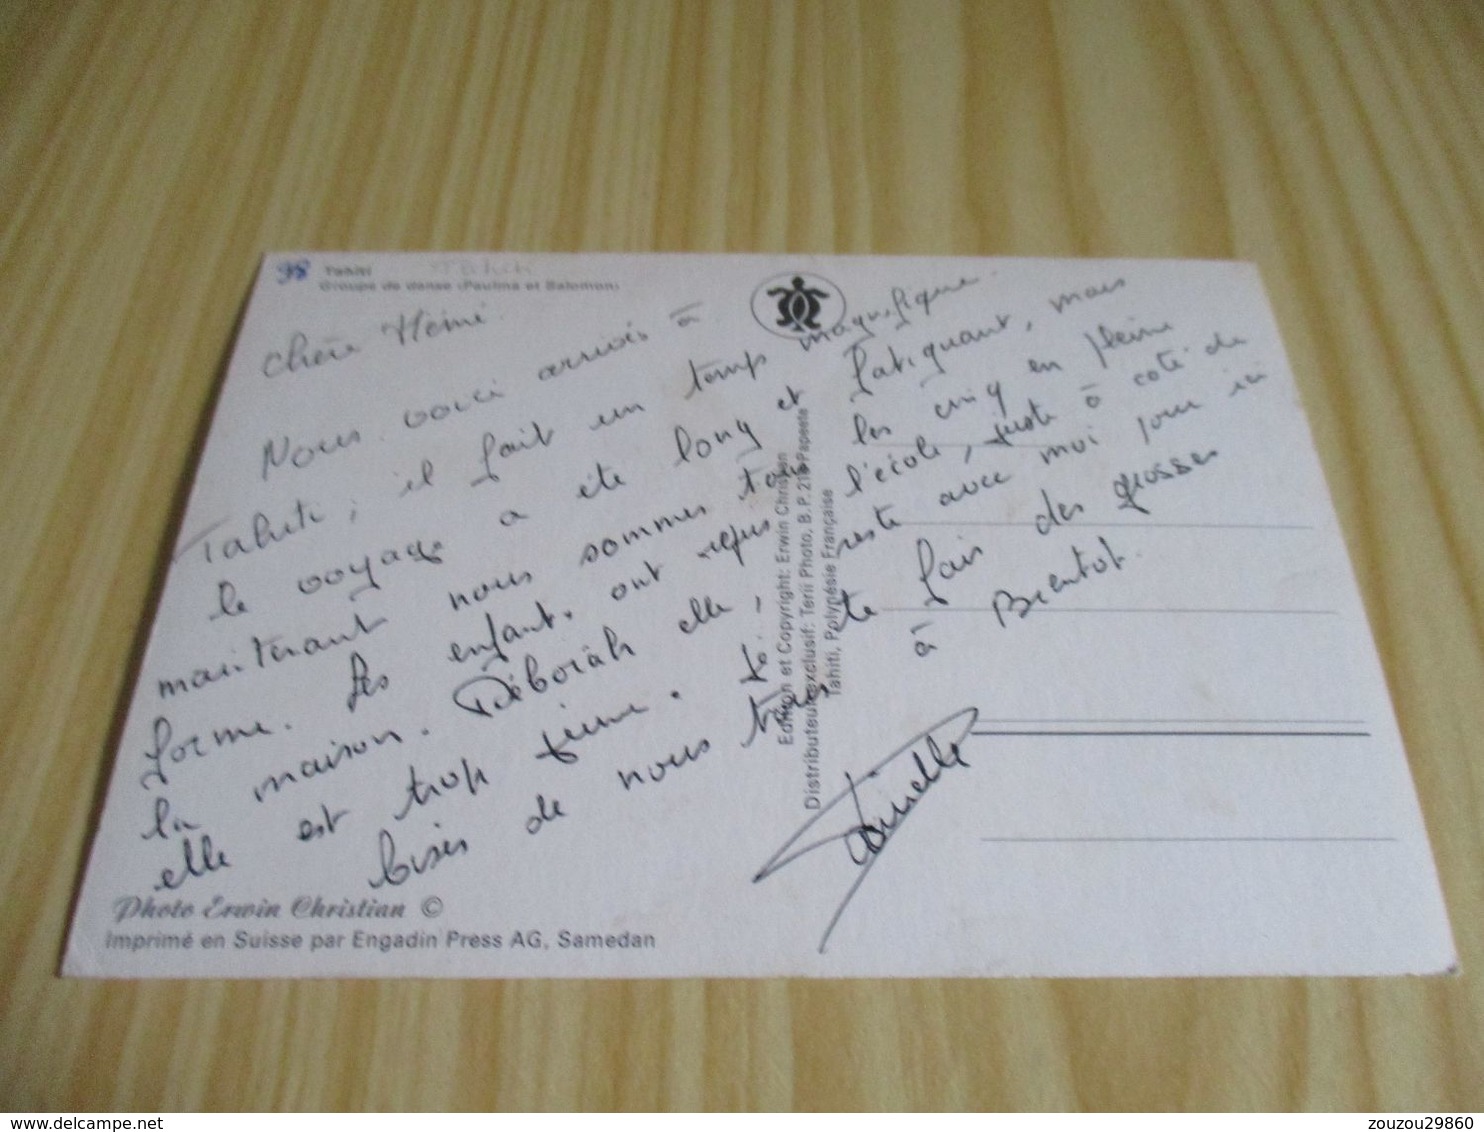 98 Tahiti Tahiti
Groupe de danse (Paulina et Salomon)
Chère Mémé.
Nous voici arrivés à
Tahiti, il fait un temps magnifique.
le voyage a été long et fatiguant, mais
maintenant nous sommes tous les cinq en pleine
forme. Les enfant. ont repris l'école, juste à côté de
la maison. Déborah elle, reste avec moi pour ici
elle est trop jeune. te fais des grosses
bises de nous tous, à Bientot.
Edition et Copyright: Erwin Christian
Distributeur exclusif: Terii Photo, B.P. 219 Papeete
Tahiti, Polynésie Française
Photo Erwin Christian ©
Imprimé en Suisse par Engadin Press AG, Samedan
zouzou29860